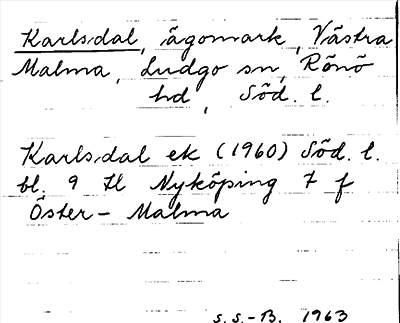 Karlsdal, ägomark, Västra
Malma, Ludgo sn, Rönö
hd, Söd. l.
Karlsdal ek (1960) Söd. l.
bl. 9 H Nyköping 7 f
Öster-Malma
S.S.-B. 1963